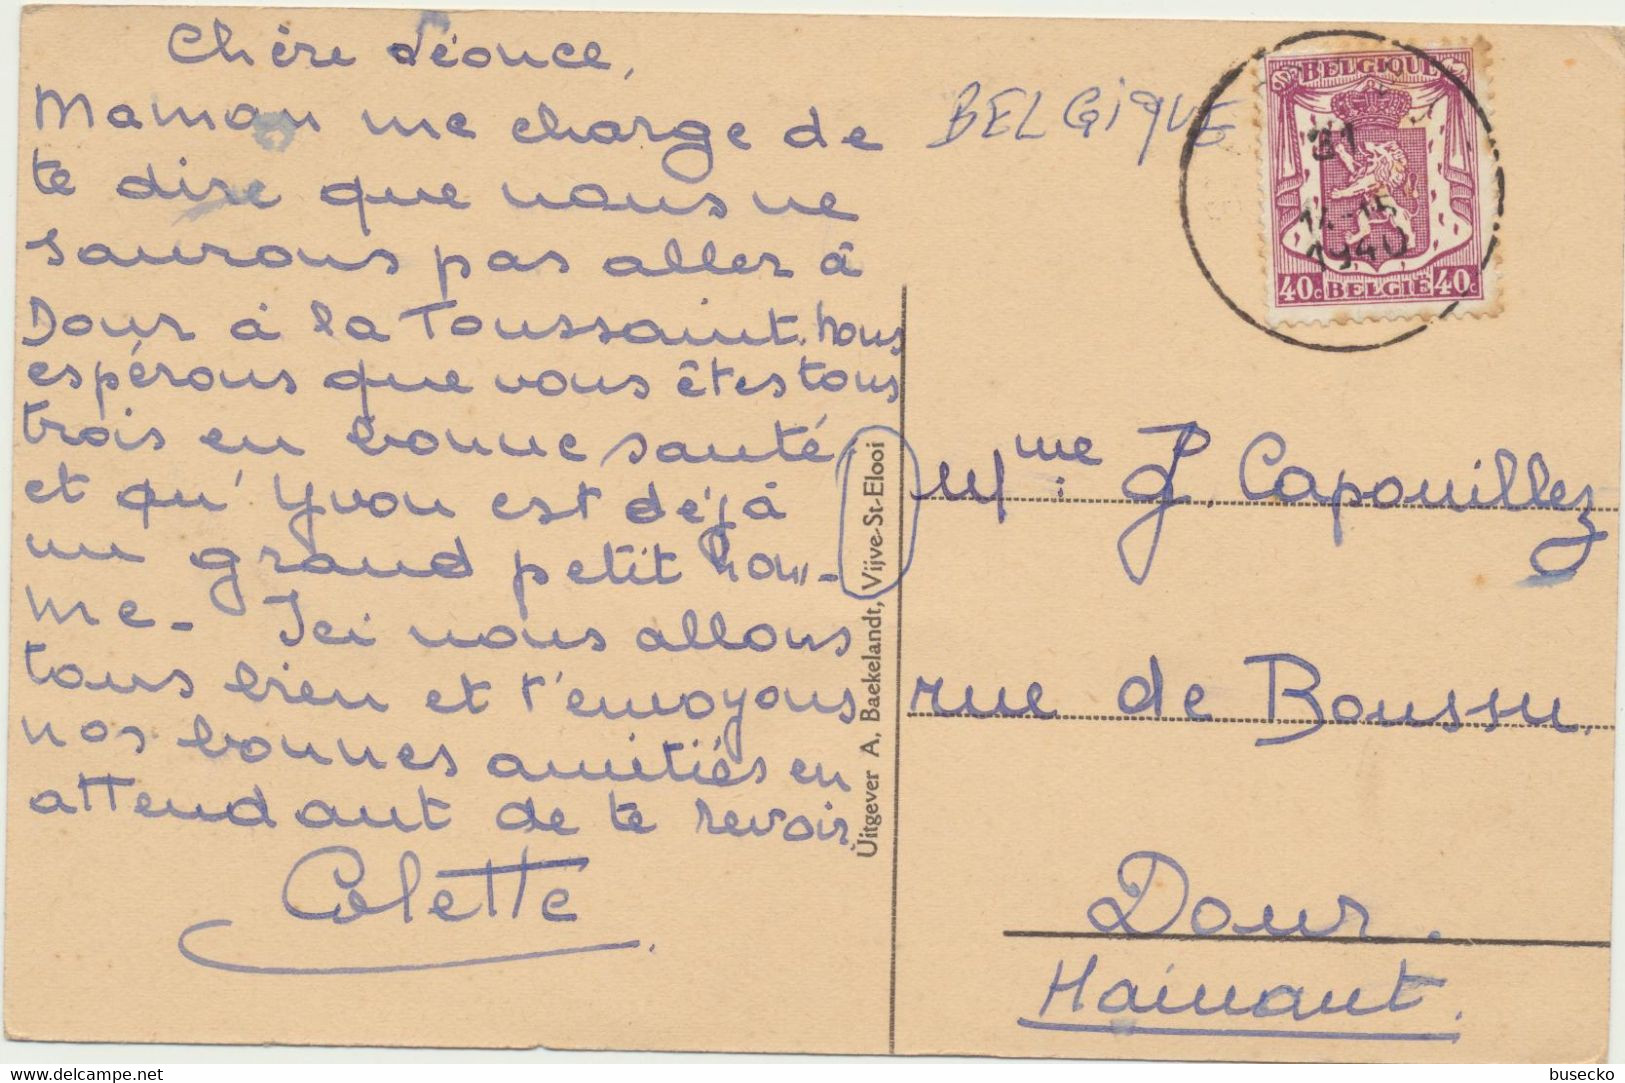 Chère Léonce,
Maman me charge de
te dire que nous ne
saurons pas aller à
Dour à la Toussaint. Nous
espérons que vous êtes tous
trois en bonne santé
et qu'Yvon est déjà
un grand petit hom-
me - Ici nous allons
tous bien et t'envoyons
nos bonnes amitiés en
attendant de te revoir.
Colette
Uitgever A. Baekelandt, Vijve-St-Elooi
BELGIQUE
BELGIQUE
31
14-15
1940
40c BELGIË 40c
Mme J. Capouillez
rue de Boussu.
Dour.
Hainaut.
www.delcampe.net
busecko